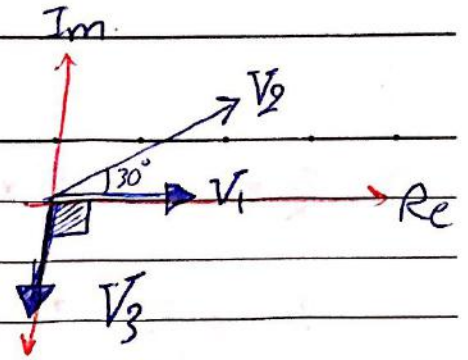 Im
V2
30°
V1
Re
V3